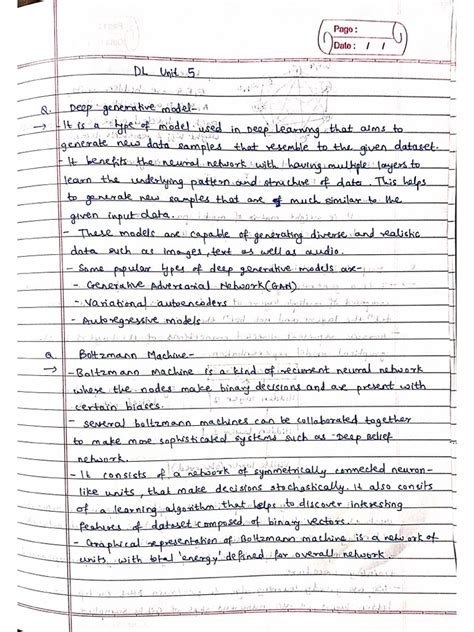 Page :
Date : / /
DL Unit 5
Q. Deep generative model-
→ It is a type of model used in Deep Learning that aims to
generate new data samples that resemble to the given dataset.
- It benefits the neural network with having multiple layers to
learn the underlying pattern and structure of data. This helps
to generate new samples that are of much similar to the
given input data.
- These models are capable of generating diverse and realistic
data such as images, text as well as audio.
- Some popular types of deep generative models are-
- Generative Adversarial Network (GAN)
- Variational autoencoders
- Autoregressive models
Q Boltzmann Machine-
→ - Boltzmann machine is a kind of recurrent neural network
where the nodes make binary decisions and are present with
certain biases.
- several boltzmann machines can be collaborated together
to make more sophisticated systems such as Deep belief
network.
- It consists of a network of symmetrically connected neuron-
like units, that make decisions stochastically. It also consits
of a learning algorithm that helps to discover interesting
features of dataset composed of binary vectors.
- Graphical representation of Boltzmann machine is a network of
units with total 'energy' defined for overall network.